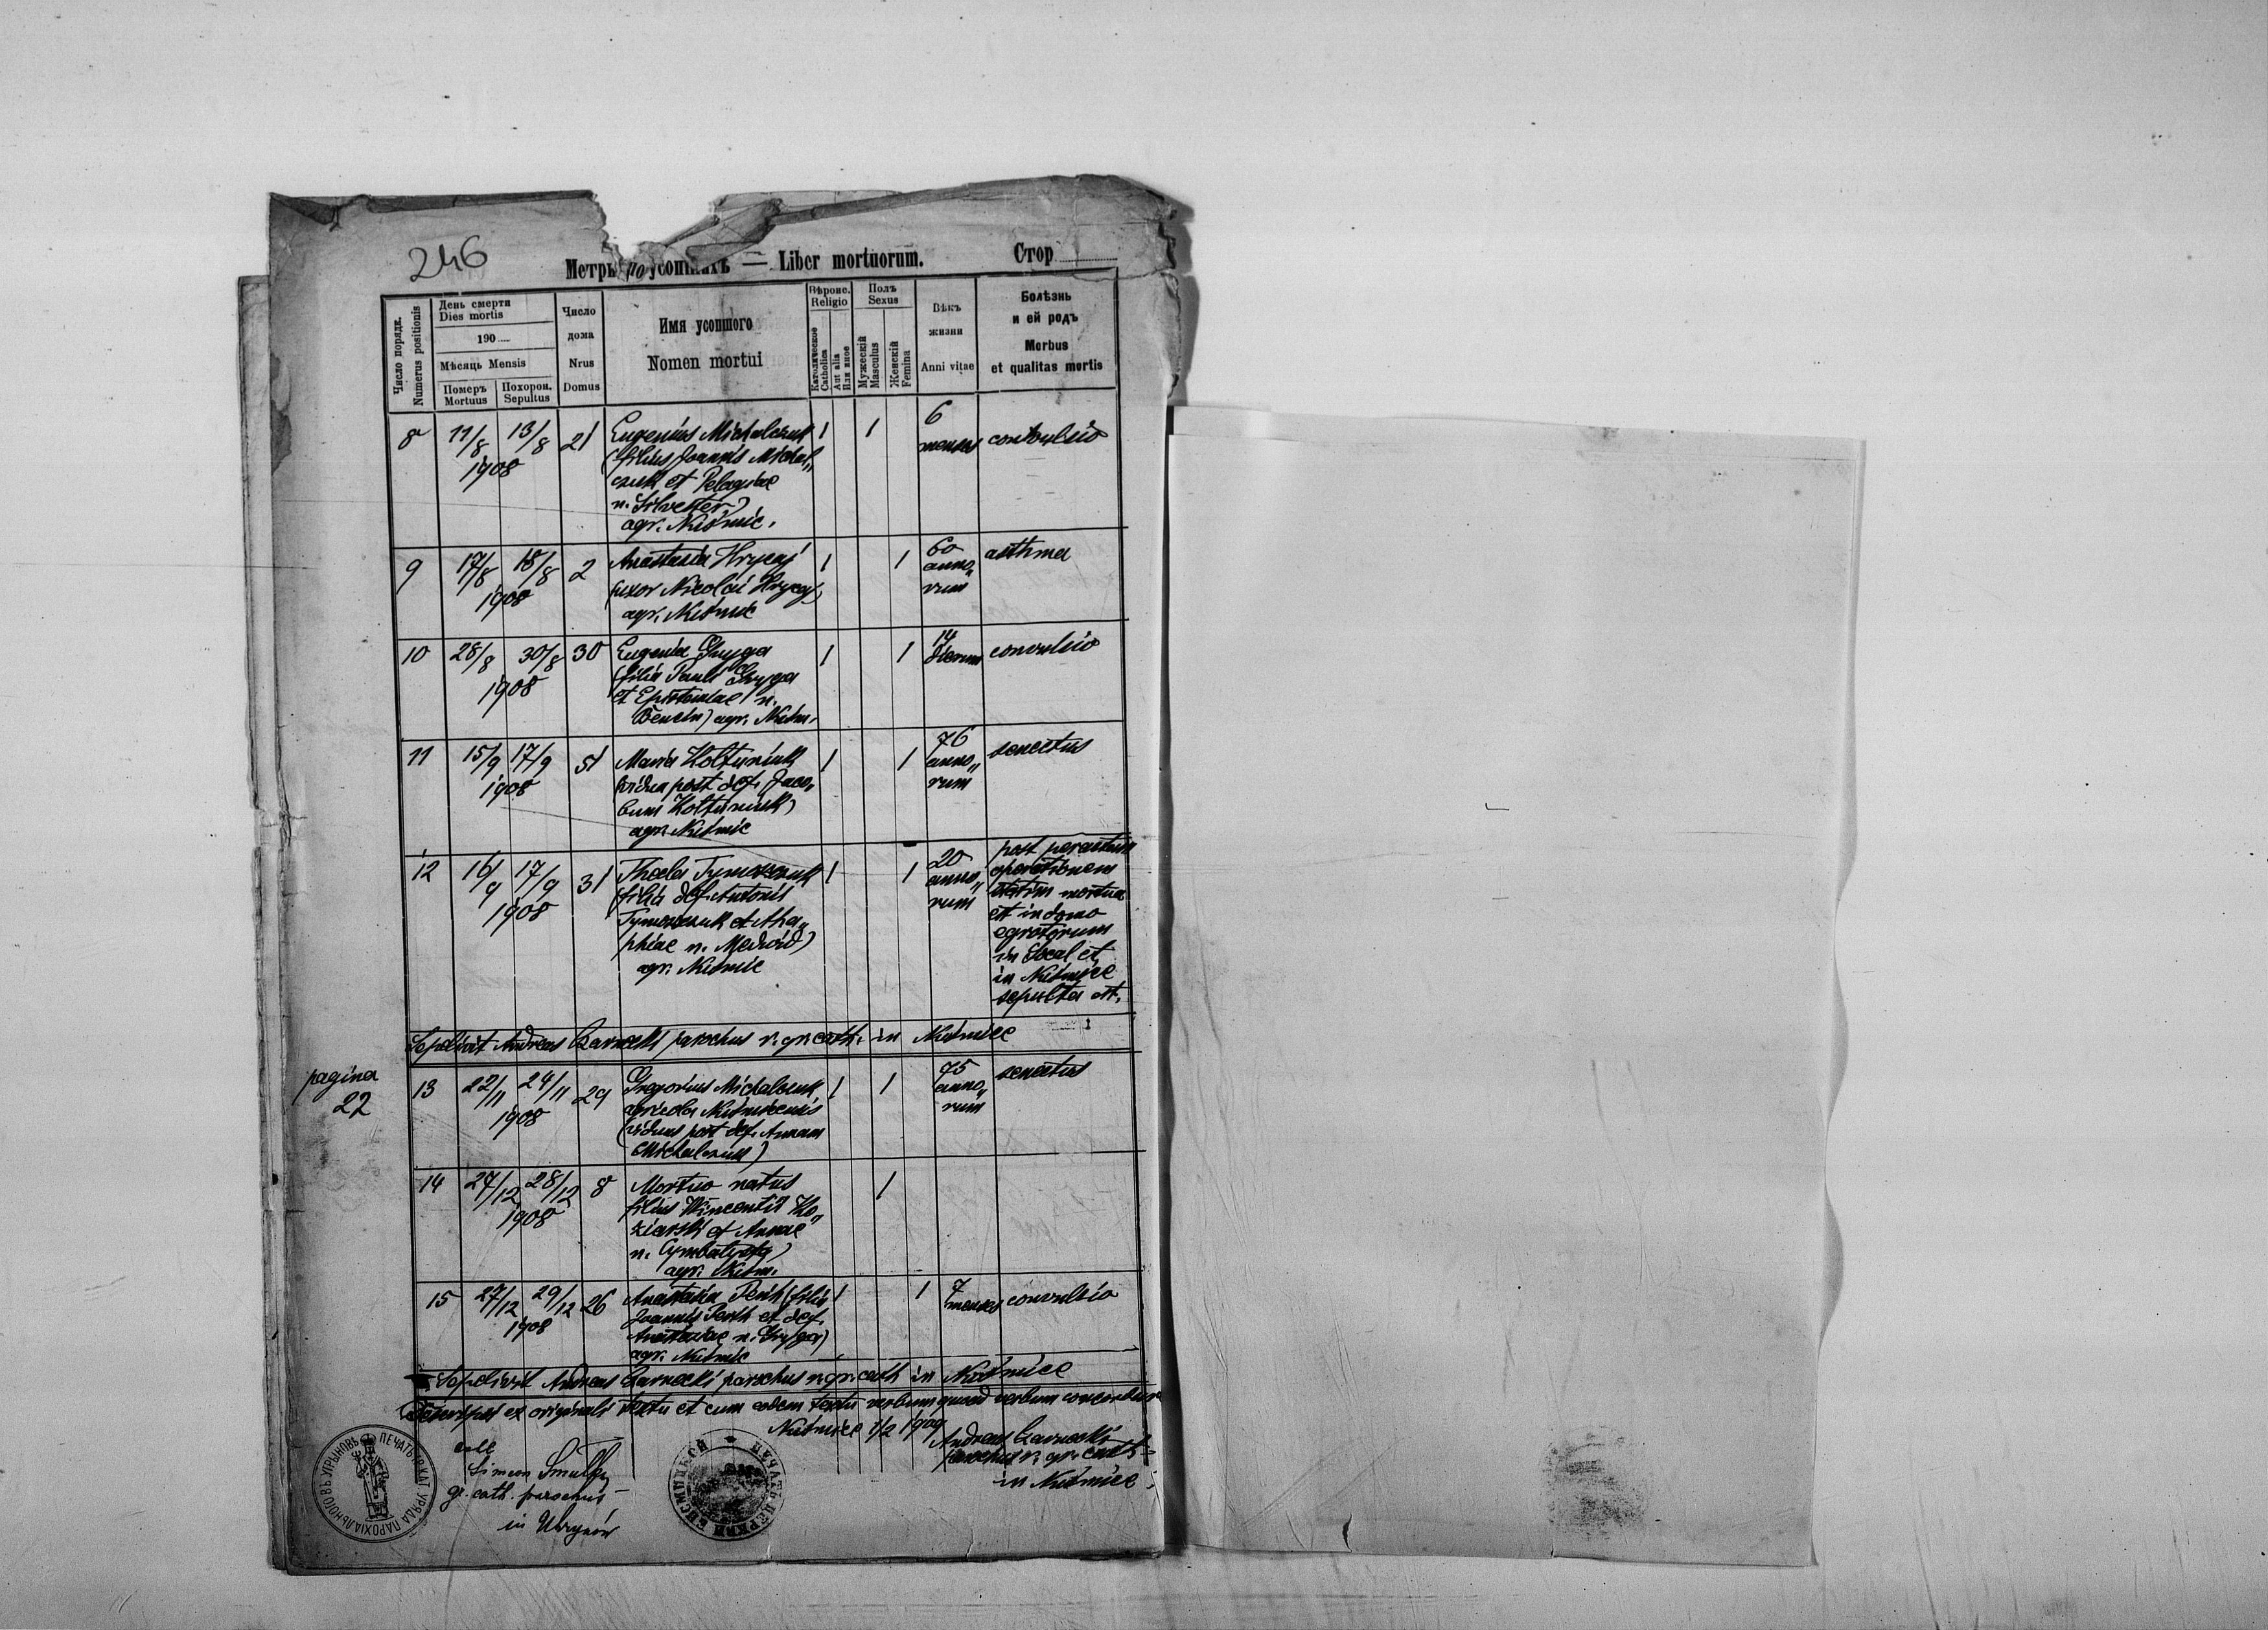 246
Метры по усопшихъ — Liber mortuorum.
Стор
Число порядк.
Numerus positionis
День смерти
Dies mortis
190
Мѣсяць Mensis
Померъ
Mortuus
Похорон.
Sepultus
Число
дома
Nrus
Domus
Имя усопшого
Nomen mortui
Вѣроис.
Religio
Католическое
Catholica
Aut alia
Или иное
Полъ
Sexus
Мужескій
Masculus
Женскій
Femina
Вѣкъ
жизни
Anni vitae
Болѣзнь
и ей родъ
Morbus
et qualitas mortis
8 11/8 13/8 1908 21 Eugenius Michalczuk 1 1 6 menses convulsio
(filius Joannis Michal„
czuk et Pelagiae
n. Silvester)
agr. Nuśmic.
9 17/8 18/8 1908 2 Anastasia Hrycaj 1 1 60 anno„rum asthma
(uxor Nicolai Hrycaj)
agr. Nuśmic
10 28/8 30/8 1908 30 Eugenia 1 1 14 dierum convulsio
(filia Pauli
et n.
agr. Nuśm.
11 15/9 17/9 1908 51 Maria Kołtuniuk 1 1 76 anno„rum senectus
(vidua post def. Jaco„
bum Kołtuniuk)
agr. Nuśmic
12 16/9 17/9 1908 31 Thecla Tymoszczuk 1 1 20 anno„rum
(filia def. Antonii
Tymoszczuk et Aga„
phiae n. Medwid)
agr. Nuśmic
post peractam
operationem
statim mortua
est in domo
egrotorum
in Socal et
in Nuśmice
sepulta est.
Sepelivit Andreas Czarnecki parochus r. gr. cath. in Nuśmice
pagina
22
13 22/11 24/11 1908 29 Gregorius Michalczuk 1 1 75 anno„rum senectus
agricola Nuśmicensis
(viduus post def. Annam
Michalczuk)
14 27/12 28/12 1908 8 Mortuo natus 1
filius Wincentii Ko„
ziarski et Annae
n. Cymbalysta)
agr. Nuśm.
15 27/12 29/12 1908 26 Anastasia (filia 1 1 7 menses convulsio
Joannis et def.
Anastasiae n.
agr. Nuśmic
Sepelivit Andreas Czarnecki parochus r. gr. cath in Nuśmice
Descripsi ex originali textu et cum eodem textu verbum quoad verbum concordare
Nuśmice 1/2 1909
Andreas Czarnecki
parochus r. gr. cath
in Nuśmice
Simeon
gr. cath. parochus
in Uhrynów
ПЕЧАТЬ ГР. КАТ. УРЯДА ПАРОХІАЛЬНОГО ВЪ УГРЫНОВѢ
ПЕЧАТЬ ЦЕРКВИ